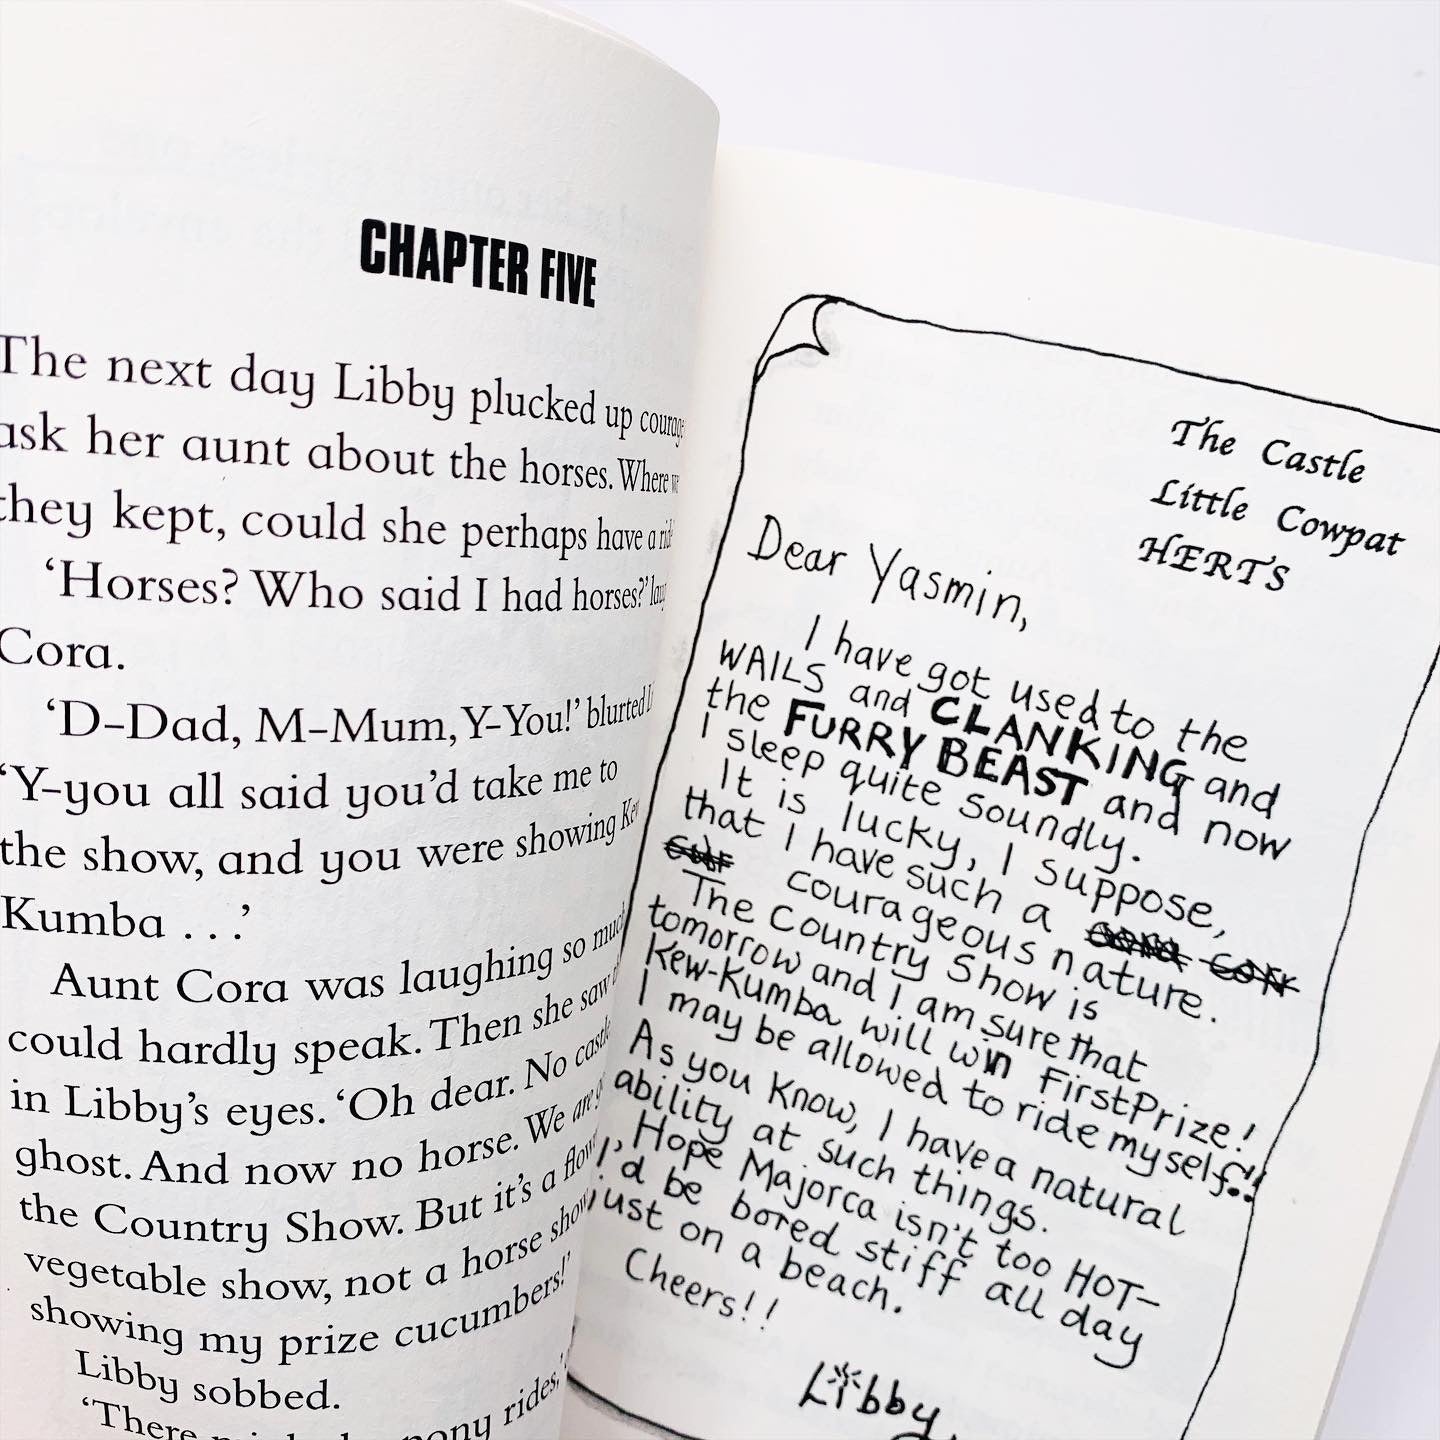 CHAPTER FIVE
The next day Libby plucked up
ask her aunt about the horses. Where
they kept, could she perhaps have a
‘Horses? Who said I had horses?’
Cora.
‘D–Dad, M–Mum, Y–You!’ blurted
‘Y–you all said you’d take me to
the show, and you were showing
Kumba . . .’
Aunt Cora was laughing so much
could hardly speak. Then she saw
in Libby’s eyes. ‘Oh dear. No
ghost. And now no horse. We are
the Country Show. But it’s a
vegetable show, not a horse show
showing my prize cucumbers!’
Libby sobbed.
‘There pony rides,’
The Castle
Little Cowpat
HERTS
Dear Yasmin,
I have got used to the
WAILS and CLANKING and
the FURRY BEAST and now
I sleep quite soundly.
It is lucky, I suppose,
that I have such a
courageous nature.
The Country Show is
tomorrow and I am sure that
Kew-Kumba will win First Prize!
I may be allowed to ride myself!!
As you know, I have a natural
ability at such things.
Hope Majorca isn't too HOT–
I'd be bored stiff all day
just on a beach.
Cheers!!
Libby